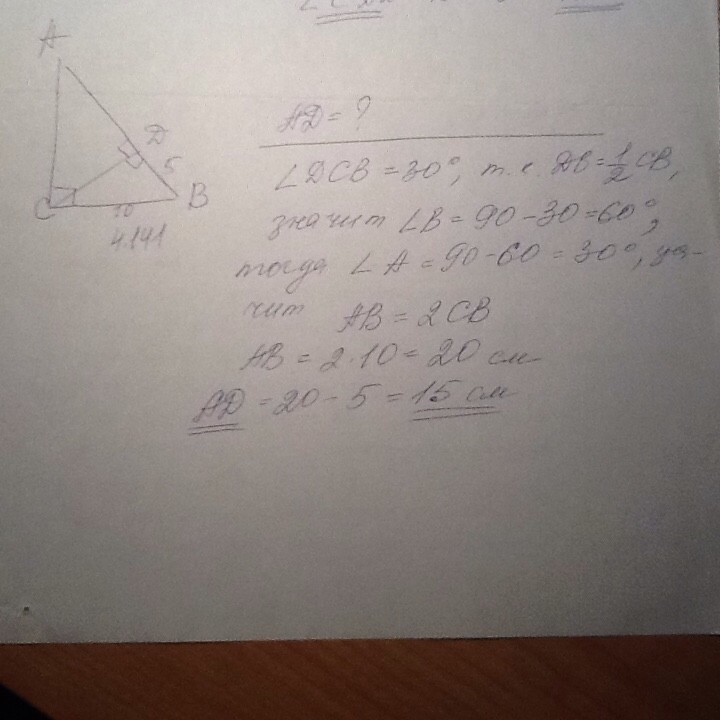 A
D
5
C
10
B
4.141
AD = ?
∠DCB = 30°, т.к. DB = 1/2 CB,
значит ∠B = 90 - 30 = 60°,
тогда ∠A = 90 - 60 = 30°, зна-
чит AB = 2CB
AB = 2·10 = 20 см
AD = 20 - 5 = 15 см